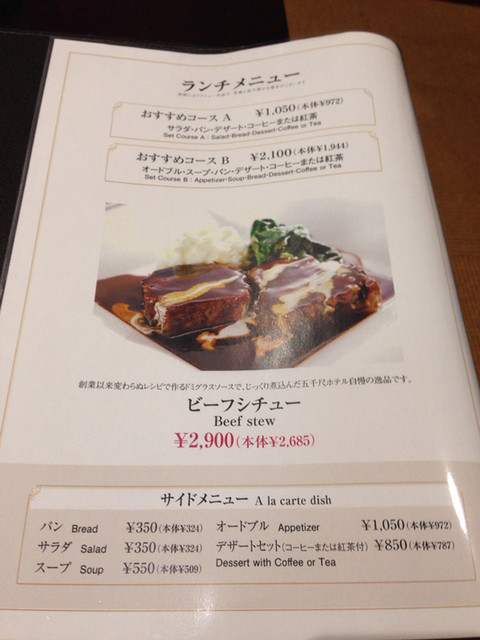 ランチメニュー
おすすめコース A ¥1,050(本体¥972)
サラダ・パン・デザート・コーヒーまたは紅茶
Set Course A : Salad・Bread・Dessert・Coffee or Tea
おすすめコース B ¥2,100(本体¥1,944)
オードブル・スープ・パン・デザート・コーヒーまたは紅茶
Set Course B : Appetizer・Soup・Bread・Dessert・Coffee or Tea
創業以来変わらぬレシピで作るドミグラスソースで、じっくり煮込んだ五千尺ホテル自慢の逸品です。
ビーフシチュー
Beef stew
¥2,900(本体¥2,685)
サイドメニュー A la carte dish
パン Bread ¥350(本体¥324) オードブル Appetizer ¥1,050(本体¥972)
サラダ Salad ¥350(本体¥324) デザートセット(コーヒーまたは紅茶付) ¥850(本体¥787)
スープ Soup ¥550(本体¥509) Dessert with Coffee or Tea